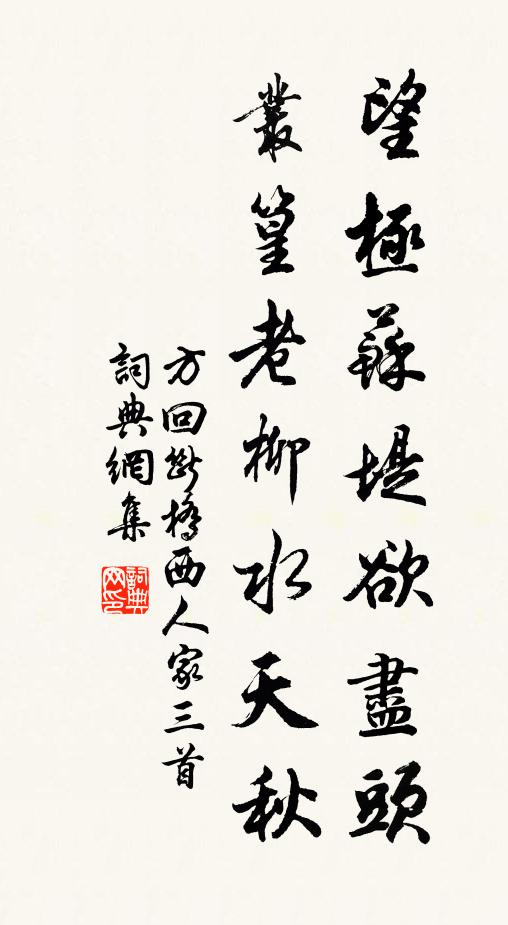 望極蘇堤欲盡頭
叢篁老柳水天秋
方回斷橋西人家三首
詞典網集
詞典网印